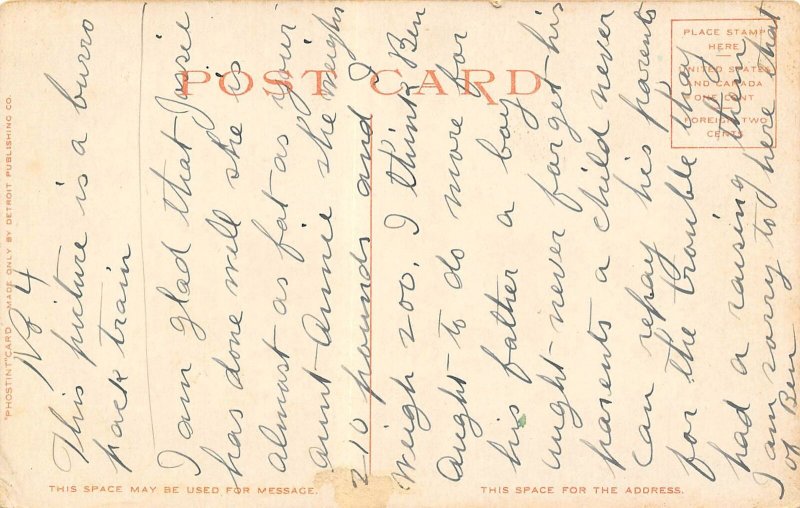 POST CARD
PLACE STAMP
HERE
UNITED STATES
AND CANADA
ONE CENT
FOREIGN TWO
CENTS
"PHOSTINT" CARD MADE ONLY BY DETROIT PUBLISHING CO.
No 4
This picture is a burro
pack train
I am glad that Jossie
has done well she is
almost as fat as your
aunt Annie she weighs
210 pounds and I
weigh 200. I think Ben
aught to do more for
his father a boy
aught never forget his
parents a child never
can repay his parents
for the trouble thay
had a raising them
I am sorry to here that
of Ben
THIS SPACE MAY BE USED FOR MESSAGE.
THIS SPACE FOR THE ADDRESS.